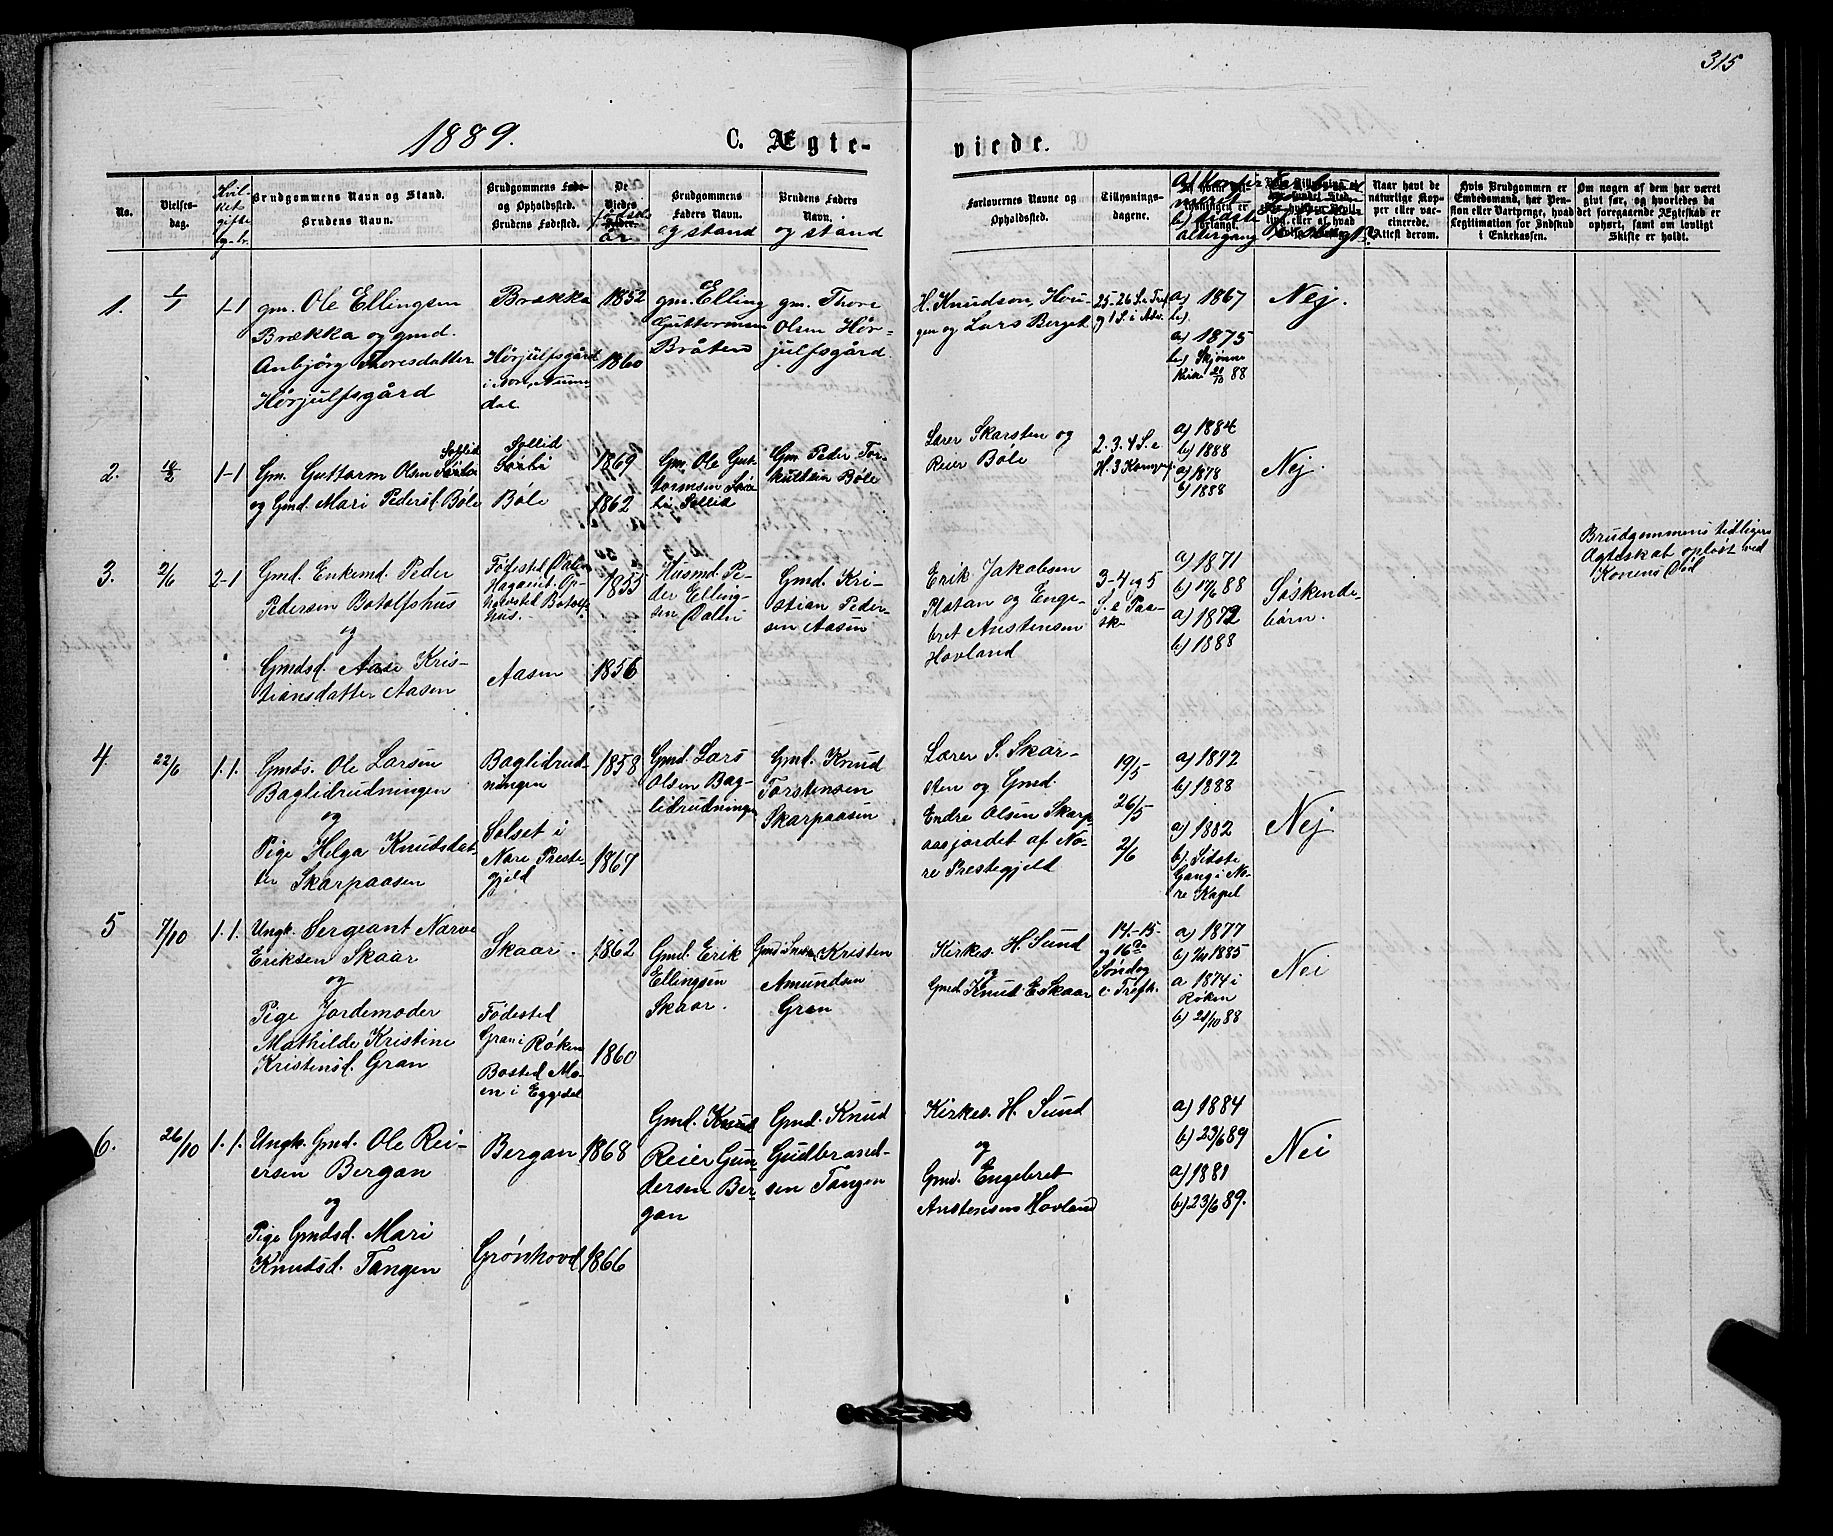 315
1889.
C. Ægte-
viede.
No.
Vielses-
dag.
Hvil-
ket
gifte
Brudgommens Navn og Stand.
Brudens Navn.
Brudgommens Føde-
og Opholdssted.
Brudens Fødested.
De
Viedes
Føds.
år
Brudgommens
Faders Navn.
og stand
Brudens Faders
Navn.
og stand
Forlovernes Navne og
Opholdssted.
Tillysnings-
dagene.
altergang
Naar havt de
naturlige Kop-
per eller vac-
cinerede.
Attest derom.
Hvis Brudgommen er
Embedsmand, har Pen-
sion eller Vartpenge, hvad
Legitimation for Indskud
i Enkekassen.
Om nogen af dem har været
givt før, og hvorledes da
det foregaaende Ægteskab er
ophørt, samt om lovligt
Skifte er holdt.
1.
1/1
1-1
gm. Ole Ellingsen
Brækka og gmd.
Anbjörg Thoresdatter
Hørjulfsgård
Brækka
Hørjulfsgård
i Nore, Numme
dal.
1852
1860
gm. Elling
Guttormsen
Bråten
gm. Thore
Olsen Hør-
julfsgård.
H. Knudson, Hou-
gen og Lars Berget.
25-26 S. e Tref.
og 1 S. i Adv.
a) 1867
b)
a) 1875
b) Skjønne
Kirke 21/10 88
Nej.
2.
18/2
1-1
Gm. Guttorm Olsen Sollid
og Gmd. Mari Pedersd. Bøle
Sollid
Bøle
1869
1862
Gm. Ole Gut-
tormsen
Sollid
Gm. Peder Tor-
Bøle
Lærer Skarsten og
Reier Bøle
2. 3. 4 S. e
H. 3 Konger
a) 1884
b) 1888
a) 1878
b) 1888
Nej.
3.
2/6
2-1
Gmd. Enkemd. Peder
Pedersen Botolfshus
og
Gmdsd. Aase Kris-
tiansdatter Aasen
Fødested Dalen
Hagaeiet. Op-
holdssted Botolfs-
hus.
Aasen
1855
1856
Husmd. Pe-
der Elling-
sen Dalen
Gmd. Kri-
stian Peder-
sen Aasen
Erik Jakobsen
Platan og Enge-
bret Anstensen
Hovland
3-4 og 5
S. e Paa-
ske
a) 1871
b) 17/6 88
a) 1872
b) 1888
Søskende-
børn.
Brudgommens tidligere
Ægteskab opløst ved
Konens Død
4.
22/6
1.1.
Gmds. Ole Larsen
Baglidrudningen
og
Pige Helga Knudsdat-
ter Skarpaasen
Baglidrud-
ningen
Solset i
Nore Preste-
gjeld
1858
1867
Gmd. Lars
Olsen Bag-
lidrudningen
Gmd. Knud
Torstensen
Skarpaasen
Lærer S. Skar-
sten og Gmd.
Endre Olsen Skarp
aasjordet af No-
re Prestegjeld
19/5
26/5
2/6
a) 1872
b) 1888
a) 1882
b) Sidste
Gang i No-
re Kapel
Nej
5
7/10
1.1.
Ungk. Sergeant Narve
Eriksen Skaar
og
Pige Jordemoder
Mathilde Kristine
Kristensd. Gran
Skaar.
Fødested
Gran i Røken
Bosted Mo-
en i Eggedal
1862
1860
Gmd. Erik
Ellingsen
Skaar.
Kristen
Amundsen
Gran
Kirkes. H. Sund
og
Gmd. Knud E. Skaar
14.-15-
og 16de
Søndag
e. Trefh.
a) 1877
b) 1885
a 1874 i
Røken
b) 21/10 88
Nei
6.
26/10
1.1.
Ungk. Gmd. Ole Rei-
ersen Bergan
og
Pige Gmdsd. Mari
Knudsd. Tangen
Bergan
Grønhovd
1868
1866
Gmd. Knud
Reier Gun
dersen Ber-
gan
Gmd. Knud
Gudbrand-
sen Tangen
Kirkes. H. Sund
og
Gmd. Engebret
Anstensen Hovland
a) 1884
b) 23/6 89
a) 1881
b) 23/6 89.
Nei